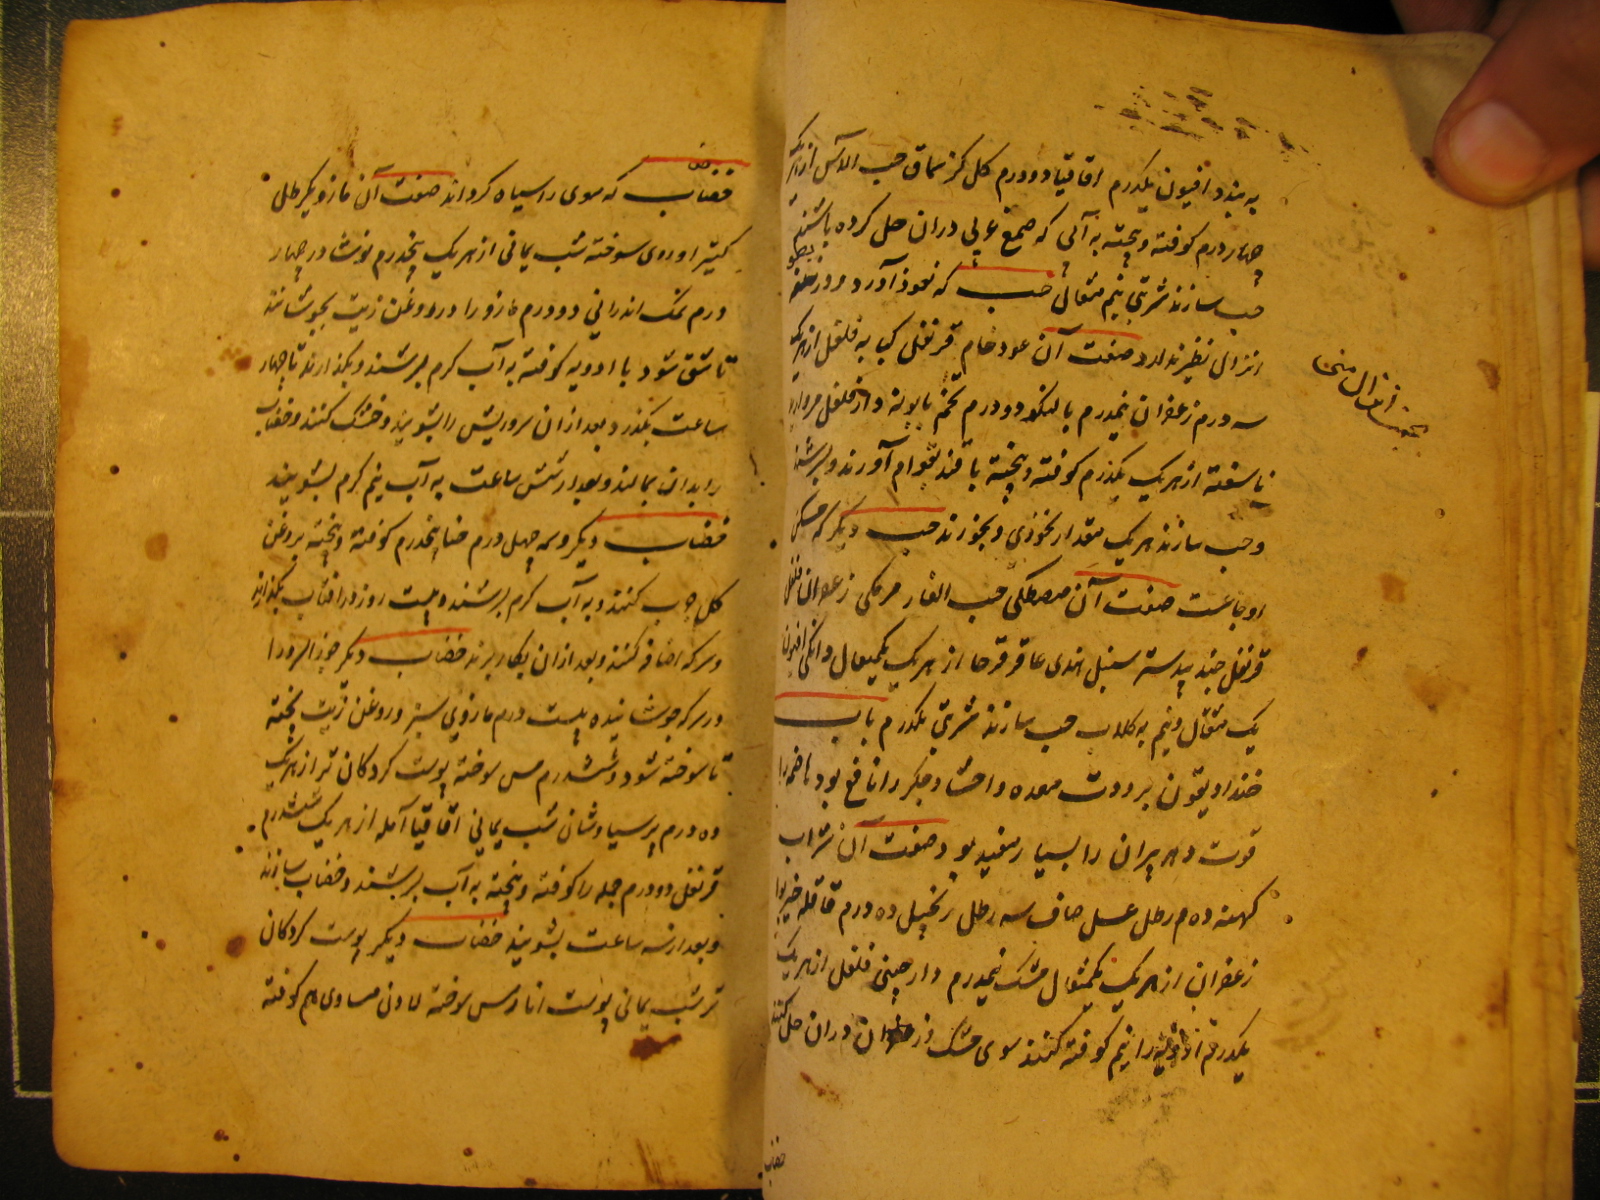 به بندد افیون یکدرم اقاقیا دو درم کل کرز سماق حب الاس از هریک
چهار درم کوفته و پخته به آبی که صمغ عربی دران حل کرده باشند
حب سازند شربتی نیم مثقالی حب که نعوذ آورد و در
انزال نظیر ندارد صفت آن عود خام قرنفل کبابه فلفل از هریک
سه درم زعفران نیمدرم بالنکو دو درم تخم بابونه دار فلفل مروارید
ناسفته از هریک یکدرم کوفته و پخته با قند بقوام آورند و بسرشند
و حب سازند هریک مقدار نخودی و بخورند حب دیگر که ممسکی
و جاعست صفت آن مصطکی حب الغار مر مکی زعفران فلفل
قرنفل جند بیدستر سنبل هندی عاقرقرحا از هریک یکمثقال دانکی افیون
یک مثقال و نیم به کلاب حب سازند شربتی یکدرم باب
خندادیقون برودت معده و احشا و جکر را نافع بود هاضمه را
قوت دهد پیران را بسیار مفید بود صفت آن شراب
کهنه ده رطل عسل صاف سه رطل زنجبیل ده درم قاقله خیربوا
زعفران از هریک یکمثقال مشک نیمدرم دارچینی فلفل از هریک
یکدرم ادویه را نیم کوفته کنند سوی مشک و زعفران دران حل کنند
انزال منی
خضاب
خضاب که موی را سیاه کرداند صفت آن مازو یکرطل
کتیرا و روی سوخته شب یمانی از هریک پنجدرم نوشادر چهار
درم نمک اندرانی دو درم مازو را در روغن زیت بجوشانند
تا شق شود با ادویه کوفته به آب کرم بسرشند و بکذارند تا چهار
ساعت بکذرد بعد از ان سر و ریش را بشویند و خشک کنند و خضاب
را بدان بمالند و بعد از شش ساعت به آب نیم کرم بشویند
خضاب دیکر وسمه چهل درم حنا پنجدرم کوفته و پخته بروغن
کل چرب کنند و به آب کرم بسرشند و بیست روز در افتاب بکذارند
و سرکه اضافه کنند و بعد از ان بکار برند خضاب دیکر جوز السرو را
در سرکه جوشانیده بیست درم مازوی سبز و روغن زیت پخته
تا سوخته شود و ششدرم مس سوخته پوست کردکان تر از هریک
ده درم پرسیاوشان شب یمانی اقاقیا آمله از هریک ششدرم
قرنفل دو درم جمله را کوفته و پخته به آب بسرشند و خضاب سازند
و بعد از سه ساعت بشویند خضاب دیکر پوست کردکان
تر شب یمانی پوست انار مس سوخته لادن مساوی هم کوفته